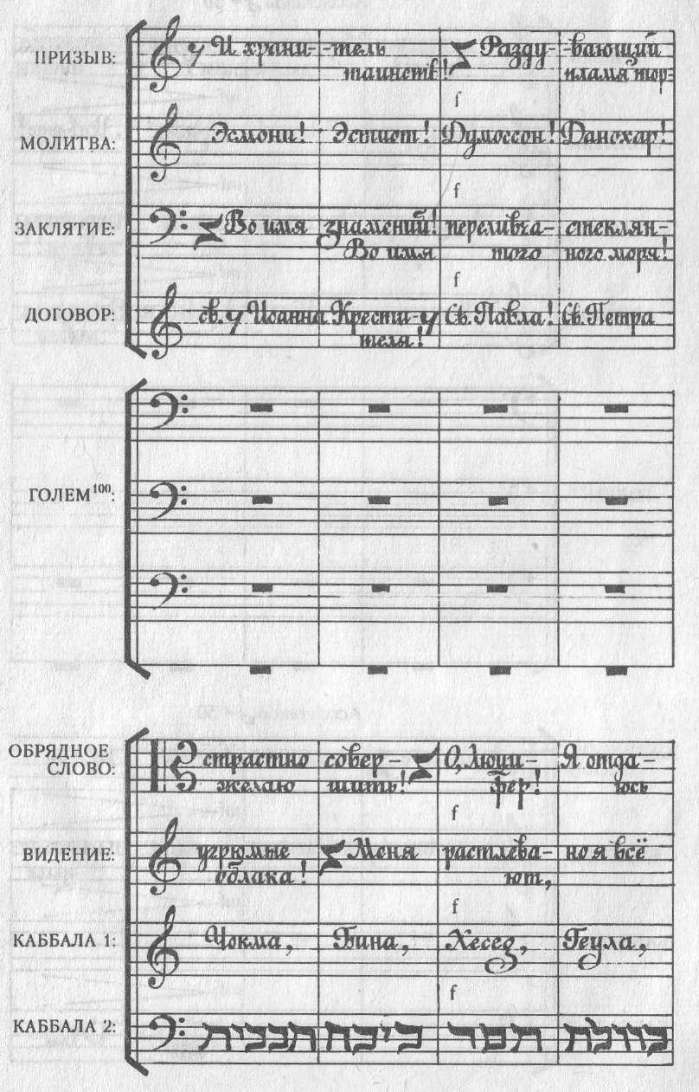 ПРИЗЫВ: И храни- -тель таинств! Разду- -вающий пламя тор-
f
МОЛИТВА: Эсмони! Эстиот! Думоссон! Данохар!
f
ЗАКЛЯТИЕ: Во имя знамений! Во имя переливча- того стеклян- ного моря!
f
ДОГОВОР: св. Иоанна Крести- теля! Св. Павла! Св. Петра
ГОЛЕМ¹⁰⁰:
ОБРЯДНОЕ СЛОВО: страстно желаю совер- шить! О, Люци- фер! Я отда- юсь
f
ВИДЕНИЕ: угрюмые облака! Меня растлева- ют, но я всё
f
КАББАЛА 1: Чокма, Бина, Хесед, Геула,
f
КАББАЛА 2: